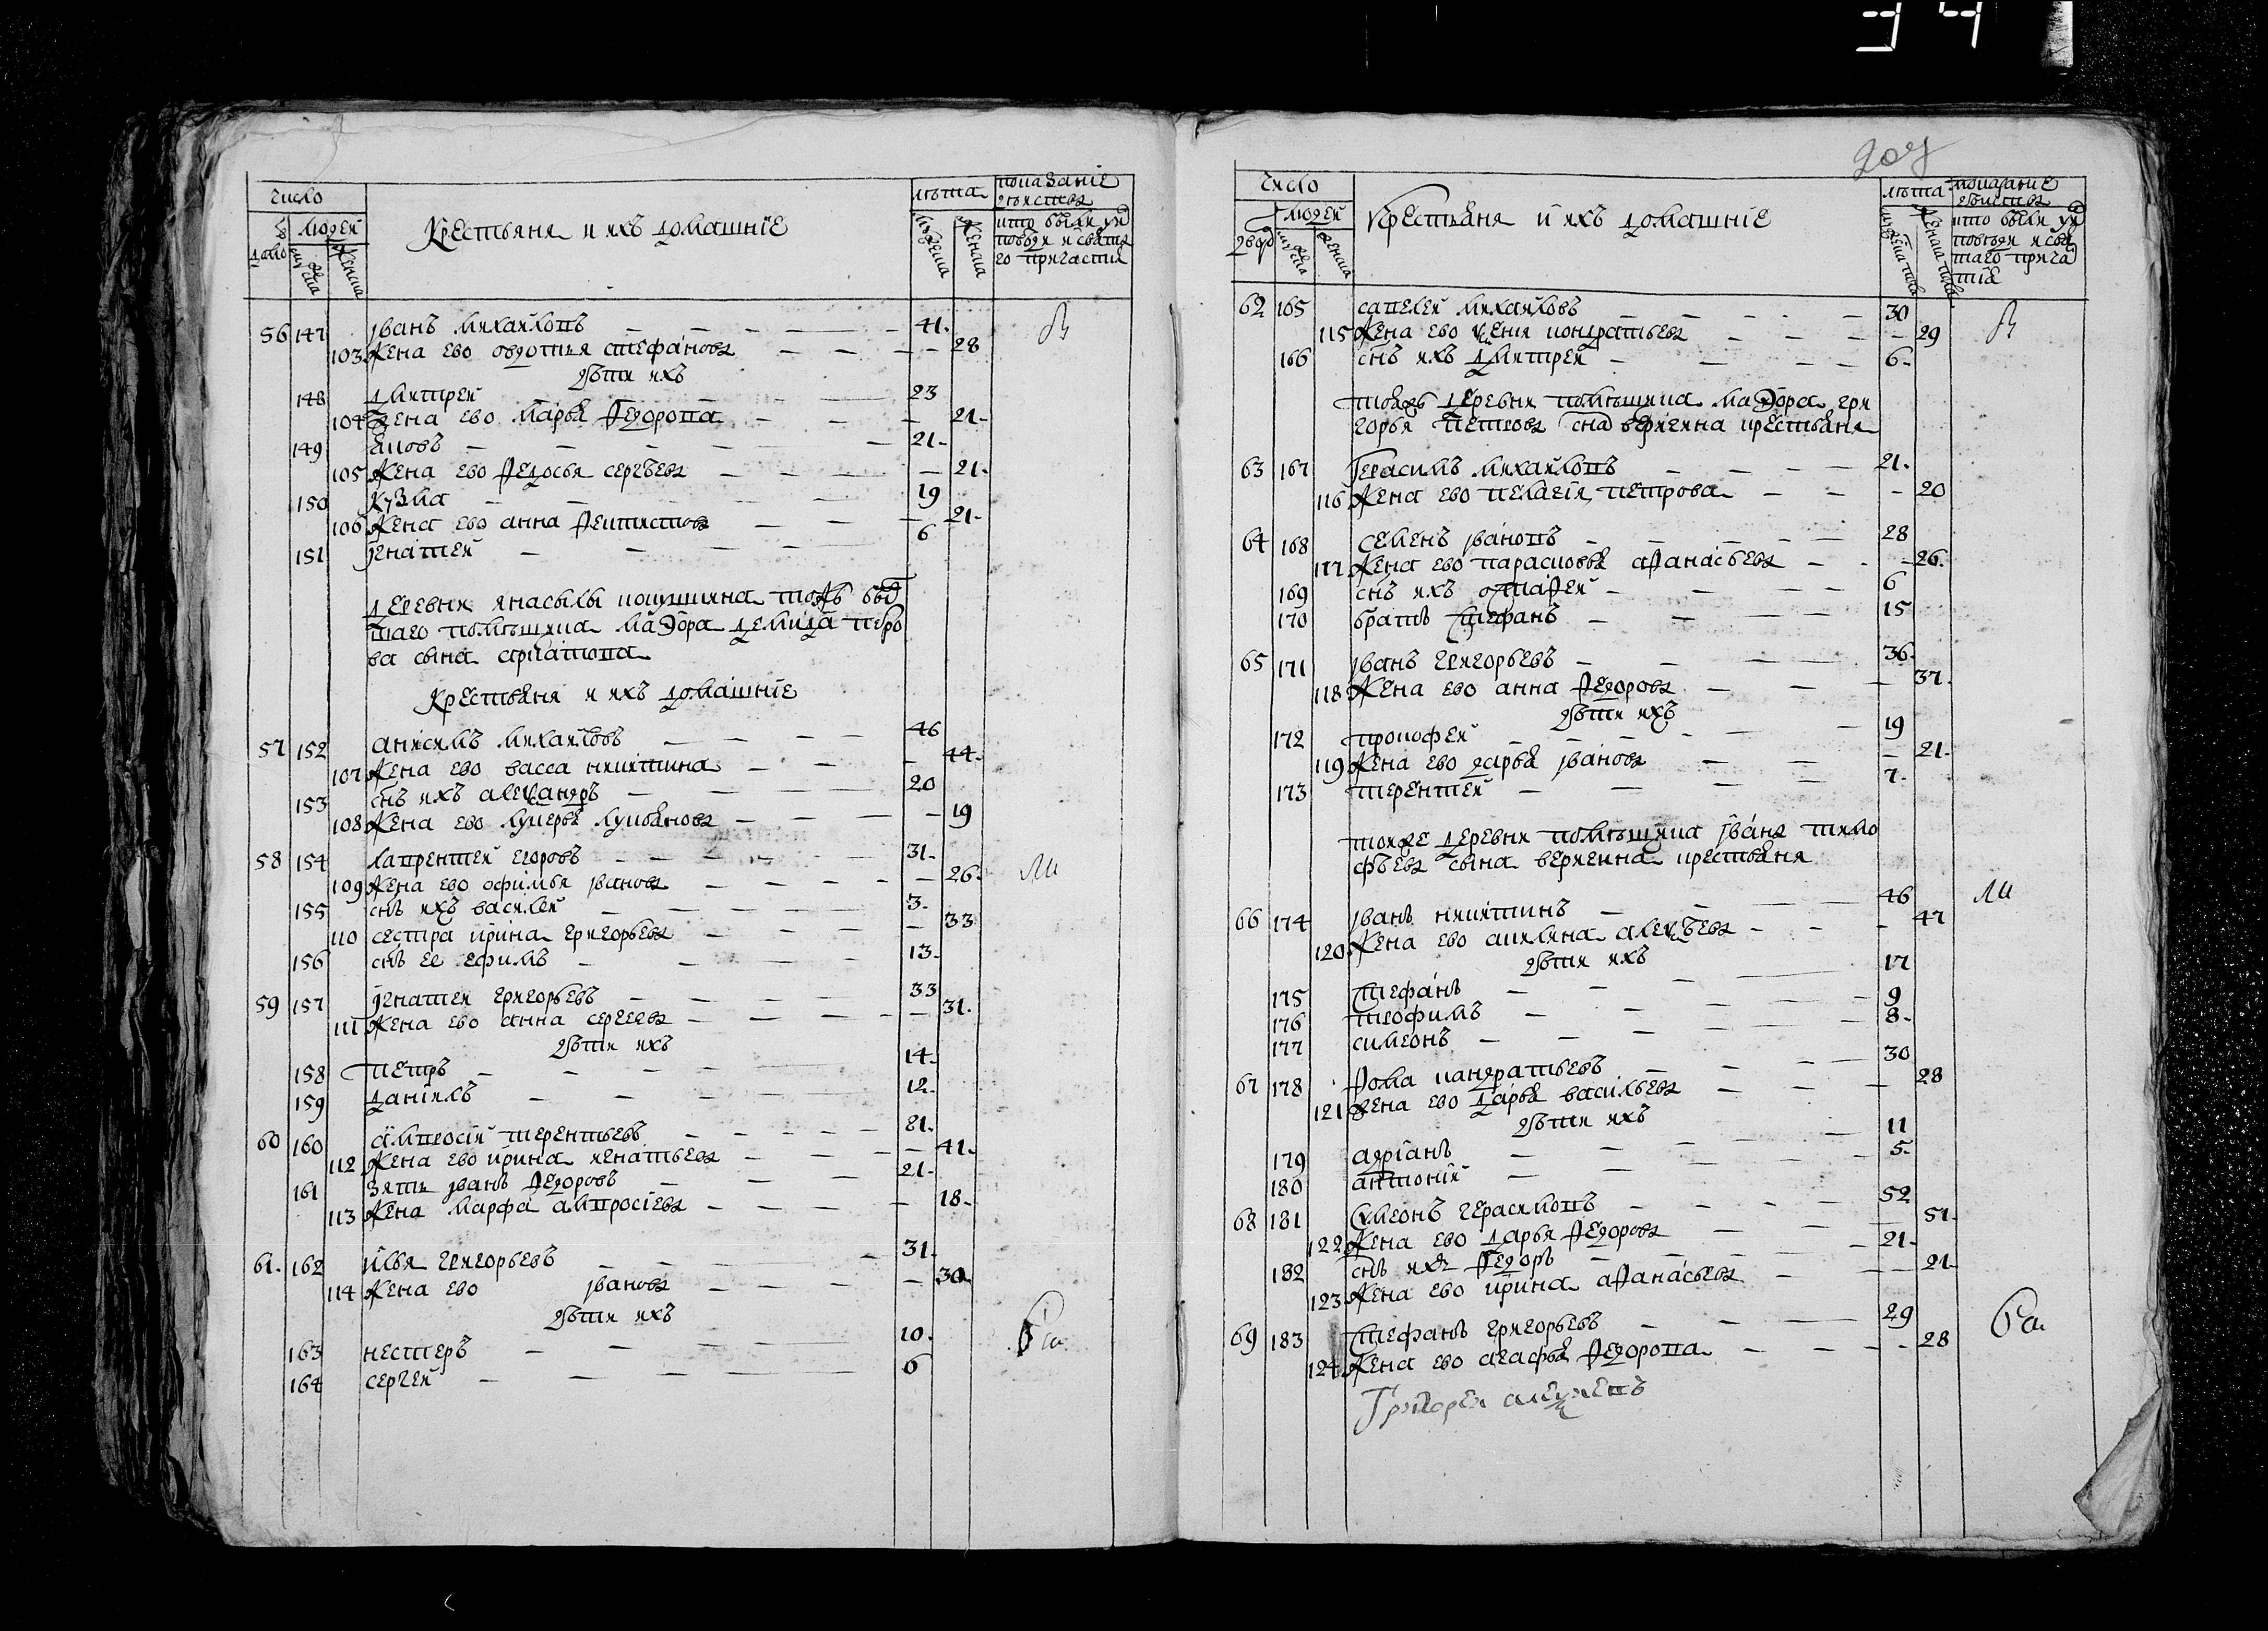 204
число
двор
людей
мужеска
женска
Крестьяня и ихъ домашніе
лѣта
мужеска
женска
показаніе
дѣйства
кто были у и
повѣди и свята
го причастия
56 147 Іванъ михайловъ 41.
103 жена ево овдотья стефанова 28
дѣти ихъ
148 дмитрей 23
104 жена ево марья федорова 21.
149 яковъ 21.
105 жена ево федосья сергѣева 21.
150 кузма 19
106 жена ево анна феитистова 21.
151 Ігнатей 6
помѣщика маэора демида
ва сына
Крестьяня и ихъ домашніе
57 152 анисимъ михайловъ 46
107 жена ево васса никитина 44.
153 снъ ихъ алеѯандръ 20
108 жена ево лукерья лукьянова 19
58 154 лаврентей егоровъ 31.
109 жена ево офимья Іванова 26.
155 снъ ихъ василей 3.
110 сестра ирина григорьева 33
156 снъ ее ефимъ 13.
59 157 Ігнатеи григорьевъ 33
111 жена ево анна сергеева 31.
дѣти ихъ
158 петръ 14.
159 даніилъ 12.
60 160 амвросій терентьевъ 21.
112 жена ево ирина игнатьева 41.
161 зять Іванъ федоровъ 21.
113 жена марфа амвросіева 18.
61. 162 илья григорьевъ 31.
114 жена ево Іванова 30.
дѣти ихъ
163 нестеръ 10.
164 сергей 6
число
двор
людей
мужеска
женска
Крестьяня и ихъ домашніе
лѣта
мужеска пола
женска пола
показание
дѣйства
кто были у и
повѣди и свя
таго прича
тіе
62 165 савелеи михаиловъ 30
115 жена ево ѯения кондратьева 29
166 снъ ихъ дмитреи 6.
тояжъ деревни помѣщика маэора гри
горья петрова сна веригина крестьяня
63 167 Герасимъ михайловъ 21.
116 жена ево пелагія петрова 20
64 168 семенъ Івановъ 28
117 жена ево парасковья афанасьева 26.
169 снъ ихъ остафеи 6
170 братъ стефанъ 15
65 171 Іванъ григорьевъ 36.
118 жена ево анна федорова 37.
дѣти ихъ
172 прокофеи 19
119 жена ево дарья Іванова 21.
173 терентеи 7.
тояже деревни помѣщика Івана тимо
фѣева сына веригина крестьяня
66 174 Іванъ никитинъ 46
120 жена ево акилина алеѯѣева 47
дѣти ихъ
175 стефанъ 17
176 трофимъ 9
177 симеонъ 8.
67 178 фома панкратьевъ 30
121 жена ево дарья васильева 28
дѣти ихъ
179 адріанъ 11
180 антоній 5.
68 181 симеонъ герасимовъ 52
122 жена ево дарья федорова 51.
182 снъ ихъ федоръ 21.
123 жена ево ирина афанасьева 21.
69 183 стефанъ григорьевъ 29
124 жена ево агафья федорова 28
Григореи алеѯеевъ